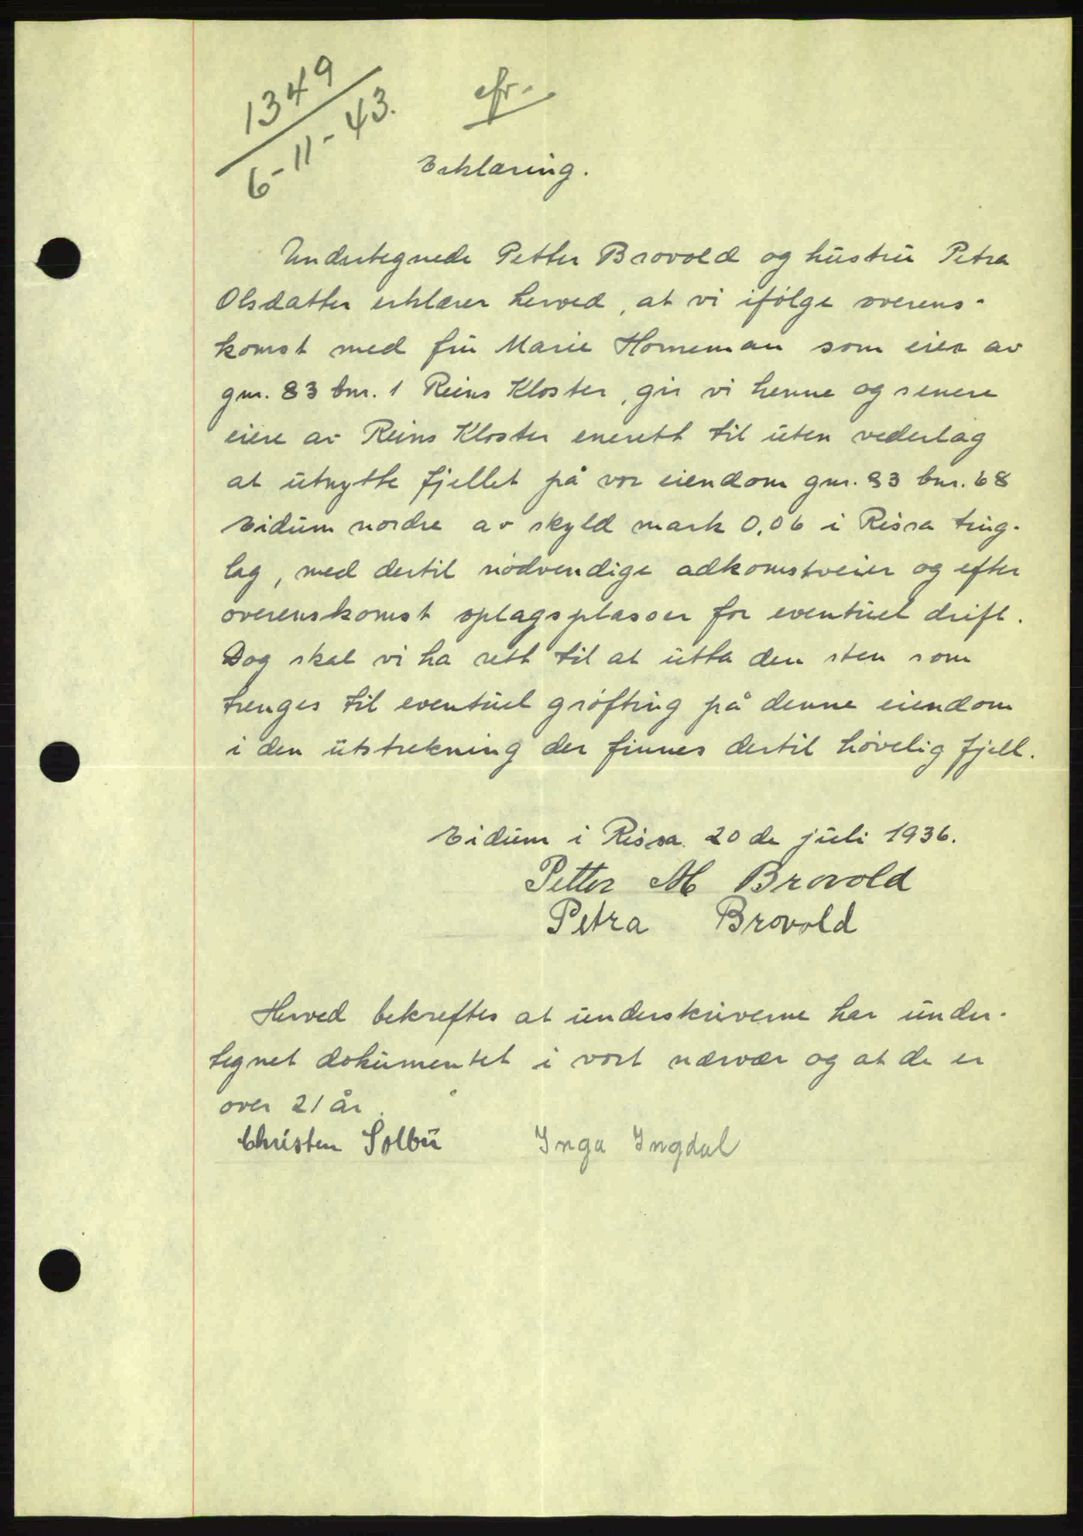 1349
6-11-43.
efr.
Erklæring.
Undertegnede Petter Brovold og hustru Petra
Olsdatter erklærer herved, at vi ifølge overens-
komst med fru Marie Horneman som eier av
gnr. 83 bnr. 1 Reins Kloster, gir vi henne og senere
eiere av Reins Kloster enerett til uten vederlag
at utnytte fjellet på vor eiendom gnr. 83 bnr. 68
Eidum nordre av skyld mark 0,06 i Rissa ting-
lag, med dertil nødvendige adkomstveier og efter
overenskomst oplagsplasser for eventuel drift.
Dog skal vi ha rett til at utta den sten som
trenges til eventuel grøfting på denne eiendom
i den utstrekning der finnes dertil høvelig fjell.
Eidum i Rissa 20 de juli 1936.
Petter M Brovold
Petra Brovold
Herved bekreftes at underskriverne har under-
tegnet dokumentet i vort nærvær og at de er
over 21 år.
Christen Solbu Inga Ingdal